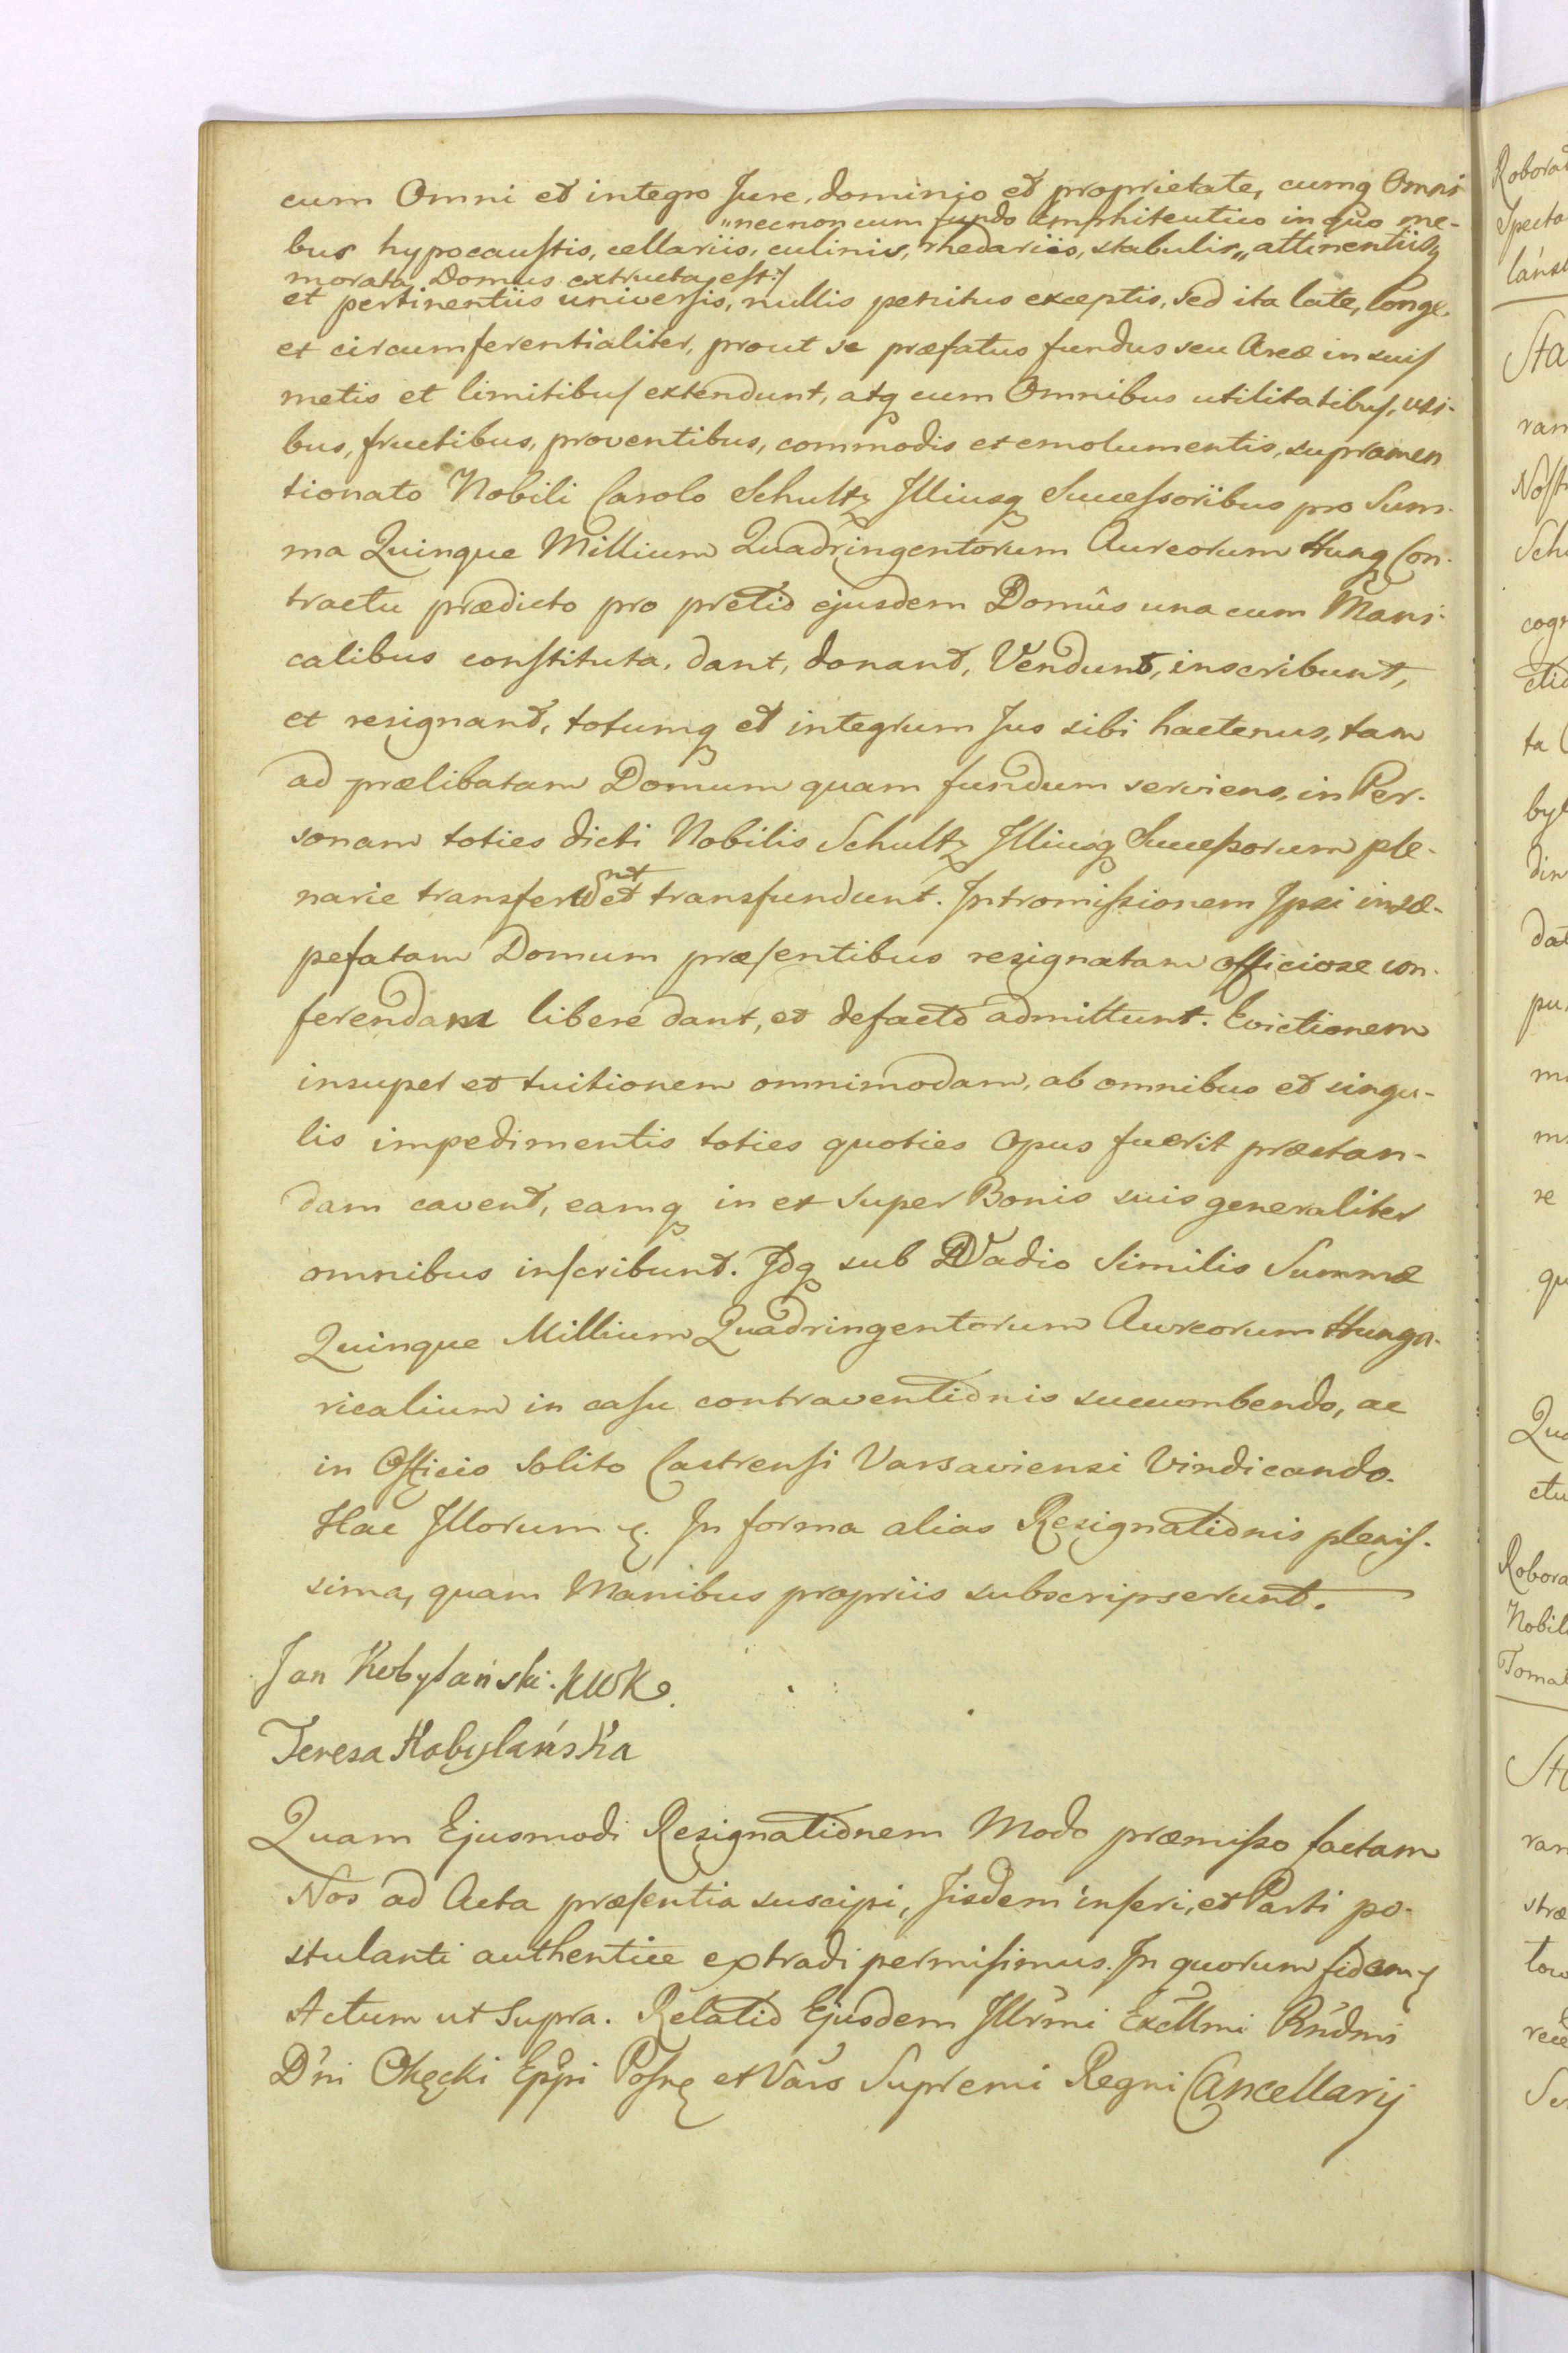 cum Omni et integro Jure, dominio et proprietate, cumq Omni
"necnon cum fundo Emphiteutico in quo me-
bus hypocaustis, cellariis, culinis, rhedariis, stabulis,, attinentiisq
morata Domus extructa est:/
et pertinentiis universis, nullis penitus exceptis, sed ita late, longe,
et circumferentialiter, prout se præfatus fundus seu Areæ in suis
metis et limitibus extendunt, atq cum Omnibus utilitatibus, usi-
bus, fructibus, proventibus, commodis et emolumentis, supramen
tionato Nobili Carolo Schultz Illiusq Successoribus pro Sum-
ma Quinque Millium Quadringentorum Aureorum Hung Con-
tractu prædicto pro pretio ejusdem Domûs una cum Mani-
calibus constituta, dant, donant, Vendunt, inscribunt,
et resignant, totumq et integrum Jus sibi hactenus, tam
ad prælibatam Domum quam fundum serviens, in Per-
sonam toties dicti Nobilis Schultz Illiusq Successorum ple-
narie transferunt et transfundunt. Intromissionem Ipsi in sæ-
pefatam Domum præsentibus resignatam officiose con-
ferendam libere dant, et defacto admittunt. Evictionem
insuper et tuitionem omnimodam, ab omnibus et singu-
lis impedimentis toties quoties Opus fuerit præstan-
dam cavent, eamq in et super Bonis suis generaliter
omnibus inscribunt. Idq sub Vadio Similis Summæ
Quinque Millium Quadringentorum Aureorum Hunga-
ricalium in casu contraventionis succumbendo, ac
in Officio Solito Castrensi Varsaviensi Vindicando.
Hac Illorum &. In forma alias Resignationis plenis-
sima, quam Manibus propriis subscripserunt.
Jan Kobylański. KWK.
Teresa Kobylańska
Quam Ejusmodi Resignationem Modo præmisso factam
Nos ad Acta præsentia suscipi, Iisdem inseri, et Parti po-
stulanti authentice extradi permisimus. In quorum fidem &
Actum ut Supra. Relatio Ejusdem Illrmi Excllmi Rndmi
D'ni Okęcki Eppi Posn et Vars Supremi Regni Cancellarij